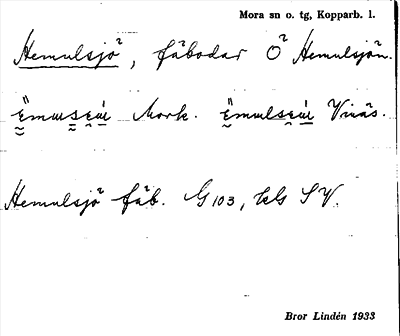 Mora sn o. tg, Kopparb. l.
Hemulsjö, fäbodar Ö Hemulsjön.
Mork. Vinäs.
Hemulsjö fäb. G 103, kls SV.
Bror Lindén 1933